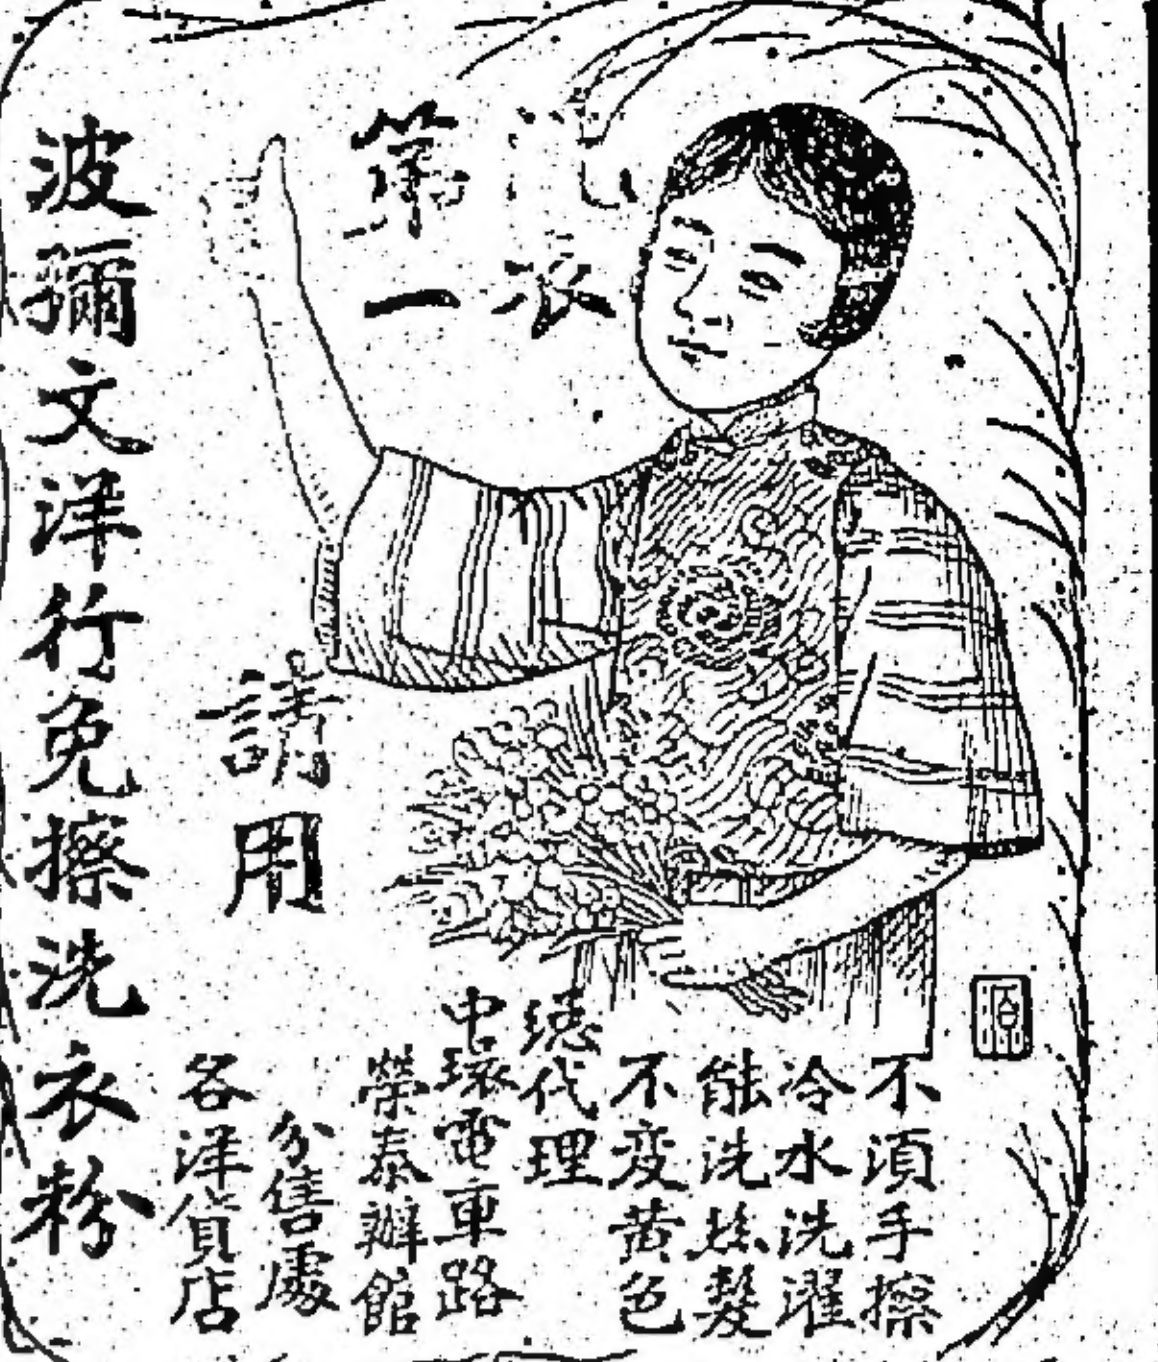 洗衣
第一
不須手擦
冷水洗濯
能洗丝髮
不变黃色
総代理
中環電車路
榮泰辦館
分售處
各洋貨店
請用
波彌文洋行免擦洗衣粉